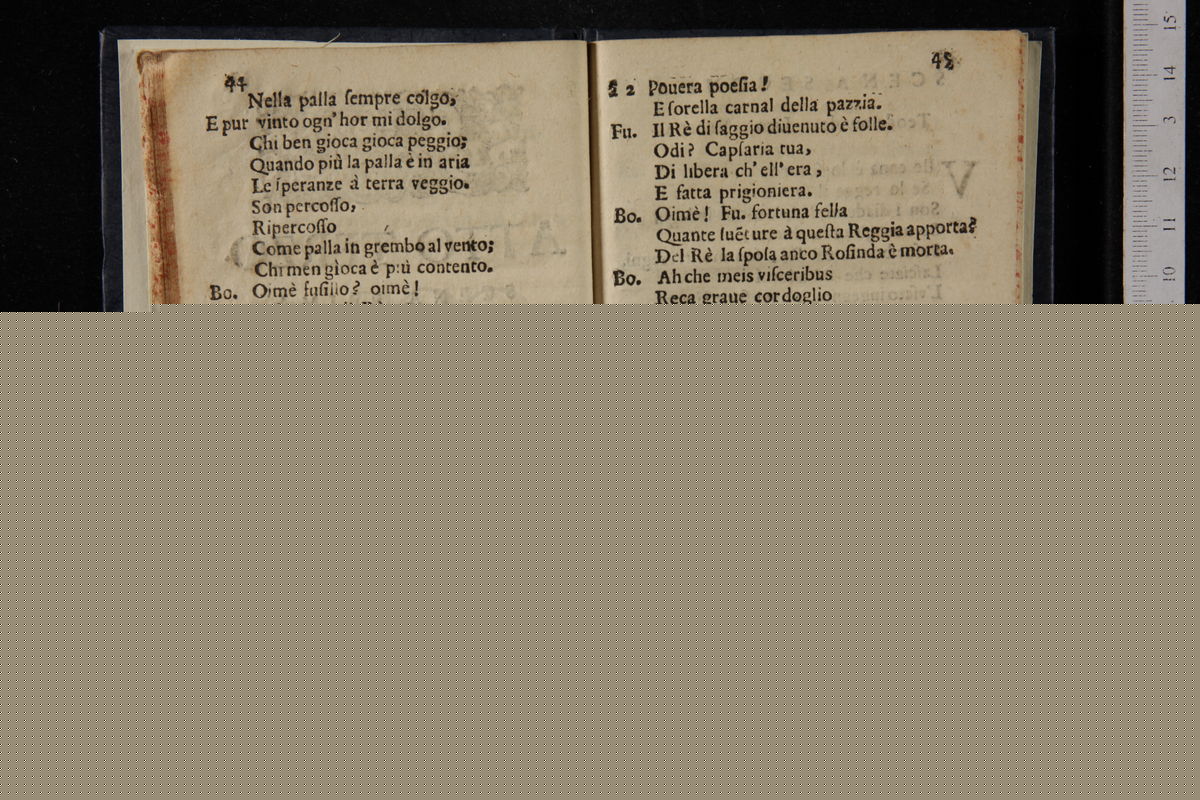 44
Nella palla ſempre colgo,
E pur vinto ogn' hor mi dolgo.
Chi ben gioca gioca peggio;
Quando più la palla è in aria
Le ſperanze à terra veggio.
Son percoſſo,
Ripercoſſo
Come palla in grembo al vento;
Chi men gioca è più contento.
Bo. Oimè fuſillo? oimè!
45
à 2 Pouera poeſia!
E ſorella carnal della pazzia.
Fu. Il Rè di ſaggio diuenuto è folle.
Odi? Capſaria tua,
Di libera ch' ell' era,
E fatta prigioniera.
Bo. Oimè! Fu. fortuna fella
Quante ſuẽture à queſta Reggia apporta?
Del Rè la ſpoſa anco Roſinda è morta.
Bo. Ah che meis viſceribus
Reca graue cordoglio
15
14
3
12
11
10